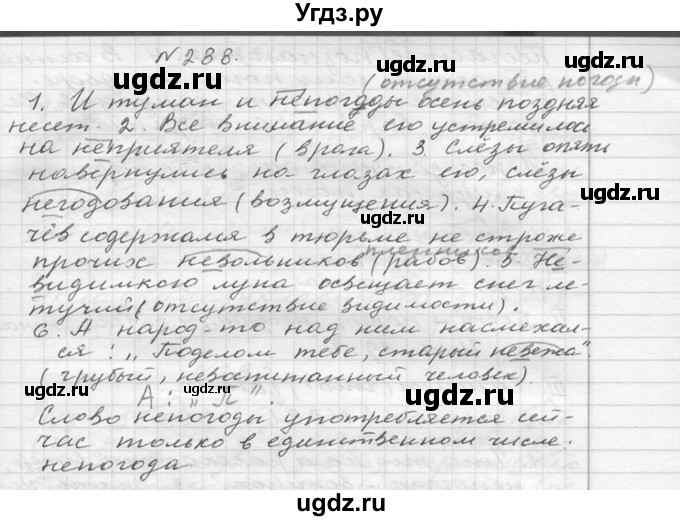 Угдз.ру
№288.
(отсутствие погоды)
1. И туман и непогоды осень поздняя
несет. 2. Все внимание его устремилось
на неприятеля (врага). 3 Слёзы опять
навернулись на глазах его, слёзы
негодования (возмущения). 4. Пуга-
чёв содержался в тюрьме не строже
пленников
прочих невольников (рабов). 5. Не-
видимкою луна освещает снег ле-
тучий (отсутствие видимости).
6. А народ-то над ним насмехал-
ся: „Поделом тебе, старый невежа".
(грубый, невоспитанный человек).
А: „П".
Слово непогоды употребляется сей-
час только в единственном числе:
непогода
ugdz.ru ugdz.ru
ugdz.ru
ugdz.ru ugdz.ru
ugdz.ru
ugdz.ru ugdz.ru
ugdz.ru
ugdz.ru ugdz.ru